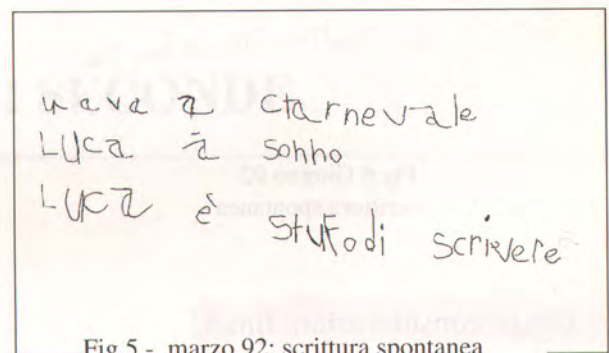 nava a ctarnevale
LUCa à sohho
LUCa è stufodi scrivere
Fig 5 - marzo 92: scrittura spontanea